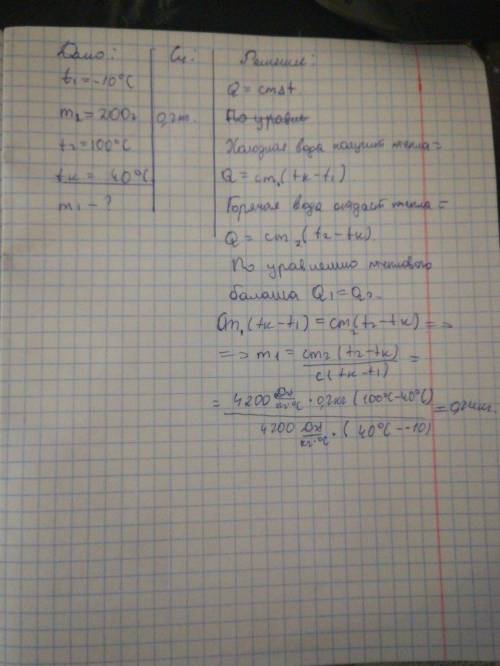 Дано:
t₁=-10°C
m₂=200г
t₂=100°C
tк= 40°C
m₁-?
Си:
0,2кг.
Решение:
Q=cmΔt
По уравне
Холодная вода получит тепла=
Q=cm₁(tк-t₁)
Горячая вода отдаст тепла=
Q= cm₂(t₂-tк)
По уравнению теплового
баланса Q₁=Q₂
Cm₁(tк-t₁)=cm₂(t₂-tк)=>
=> m₁= cm₂(t₂-tк) =
c(tк-t₁)
= 4200 Дж/кг·°C · 0,2кг (100°C-40°C) = 0,24кг.
4200 Дж/кг·°C · (40°C--10)